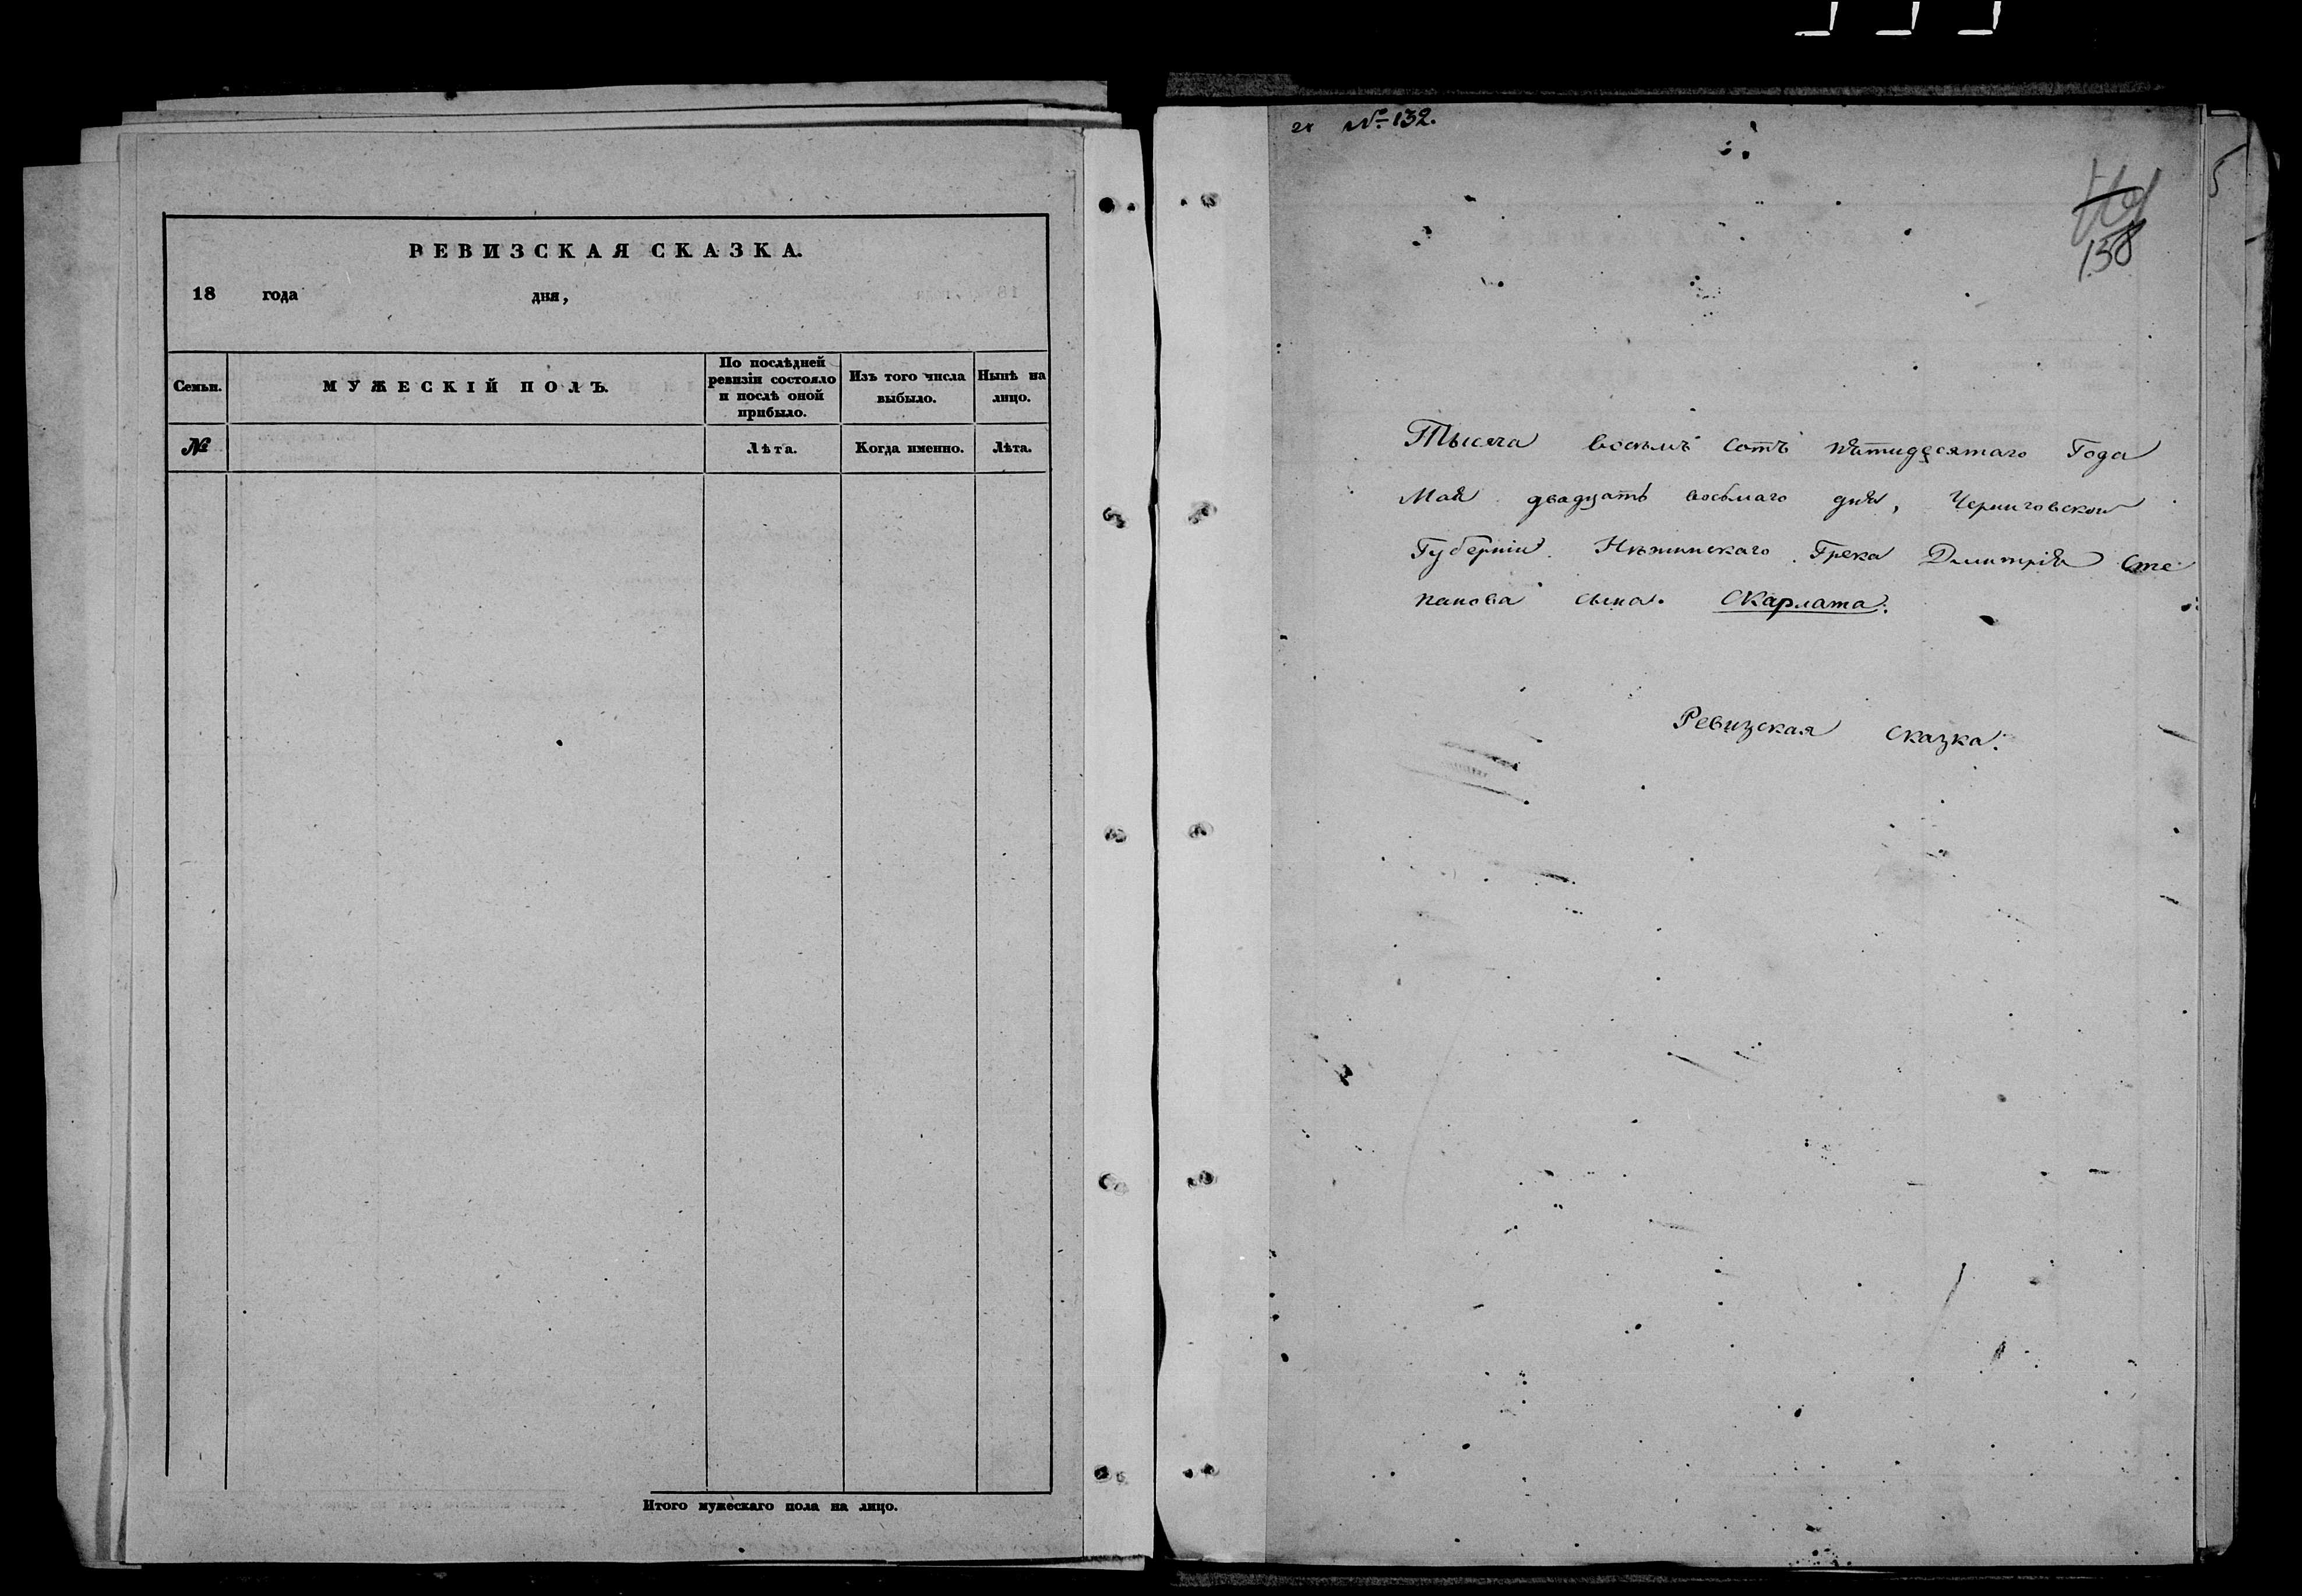 РЕВИЗСКАЯ СКАЗКА.
18 года дня,
Семьи.
МУЖЕСКІЙ ПОЛЪ.
По послѣдней
ревизіи состояло
и послѣ оной
прибыло.
Изъ того числа
выбыло.
Нынѣ на
лицо.
№
Лѣта.
Когда именно.
Лѣта.
Итого мужескаго пола на лицо.
№ 132.
158
Тысяча восемъ сотъ пѣтидесятаго Года
Маія двадцать восьмаго дня, Черниговской
Губерніи Нѣжинскаго Грека Дмитрія Сте
панова сына. Скарлата.
Ревизская сказка.